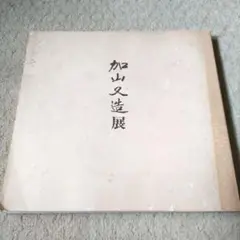 加山又造展